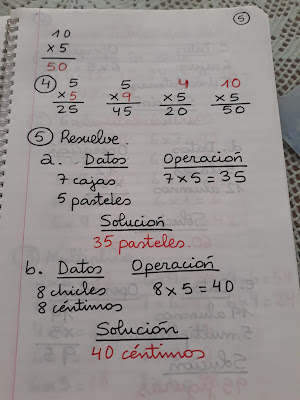 5
10
×5
50
4 5 5 4 10
×5 ×9 ×5 ×5
25 45 20 50
5 Resuelve.
a. Datos Operación
7 cajas 7×5=35
5 pasteles
Solución
35 pasteles.
b. Datos Operación
8 chicles 8×5=40
8 céntimos
Solución
40 céntimos